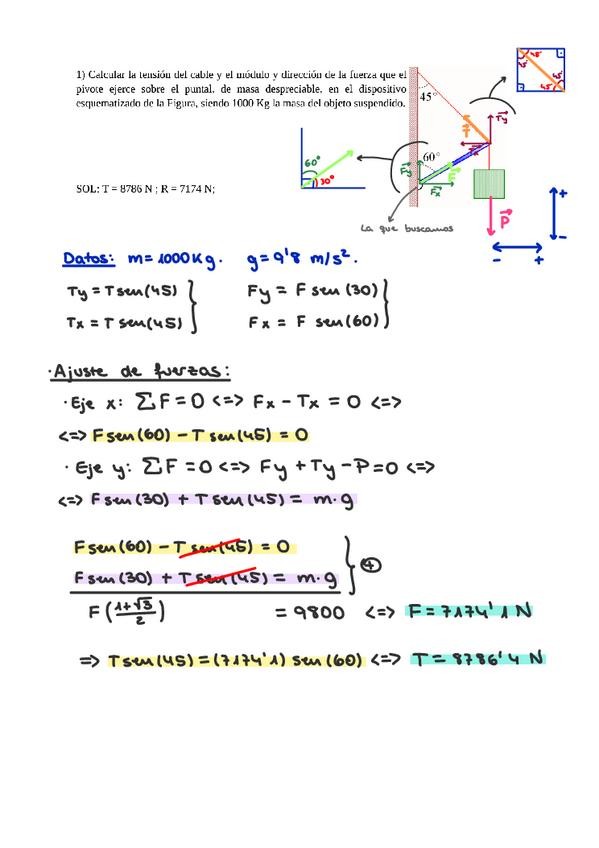 1) Calcular la tensión del cable y el módulo y dirección de la fuerza que el
pivote ejerce sobre el puntal, de masa despreciable, en el dispositivo
esquematizado de la Figura, siendo 1000 Kg la masa del objeto suspendido.
45°
45°
45°
45°
Ty
T
Tx
60°
60°
30°
Fy
Fx
P
+
-
- +
SOL: T = 8786 N ; R = 7174 N;
La que buscamos
Datos: m= 1000Kg. g= 9'8 m/s².
Ty = T sen(45) Fy = F sen (30)
Tx = T sen(45) Fx = F sen(60)
· Ajuste de fuerzas:
· Eje x: ∑F = 0 <=> Fx - Tx = 0 <=>
<=> F sen(60) - T sen(45) = 0
· Eje y: ∑F = 0 <=> Fy + Ty - P = 0 <=>
<=> F sen(30) + T sen(45) = m·g
F sen(60) - T sen(45) = 0
F sen(30) + T sen(45) = m·g
F((1+√3)/2) = 9800 <=> F = 7174'1 N
=> T sen(45) = (7174'1) sen(60) <=> T = 8786'4 N